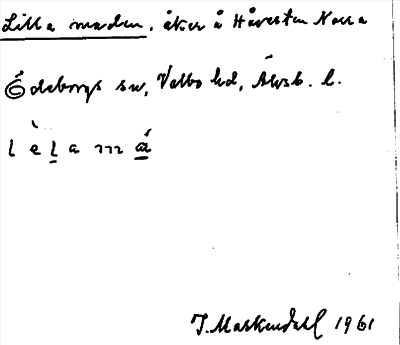 Lilla maden, åker å Håvesten Norra
Ödeborgs sn, Valbo hd, Älvsb. l.
lèl̲a mǽ̲
J. Markendahl 1961